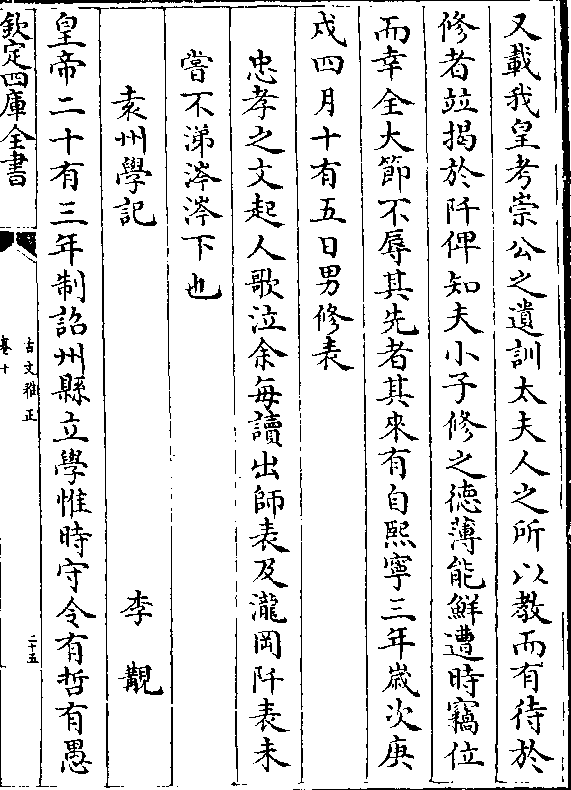 又載我皇考崇公之遺訓太夫人之所以教而有待於
修者竝揭於阡俾知夫小子修之德薄能鮮遭時竊位
而幸全大節不辱其先者其來有自熙寧三年歲次庚
戌四月十有五日男修表
忠孝之文起人歌泣余每讀出師表及瀧岡阡表未
嘗不涕涔涔下也
袁州學記
李覯
皇帝二十有三年制詔州縣立學惟時守令有哲有愚
欽定四庫全書
古文雅正
卷十
二十五